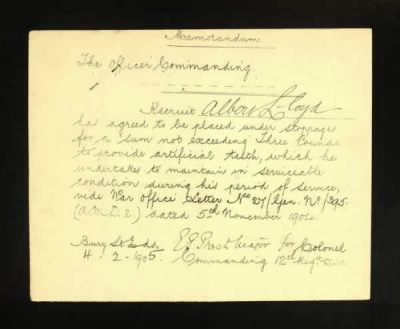 Memorandum
The Officer Commanding.
Recruit Albert Lloyd
has agreed to be placed under stoppages
for a sum not exceeding Three Pounds
to provide artificial teeth, which he
undertakes to maintain in serviceable
condition during his period of service,
vide War Office Letter No 27/Gen. No/
(A.M.D.2.) dated 5th November 1904.
Bury St Eds. Major for Colonel
4-2-1905. Commanding 12th Regtl Dist